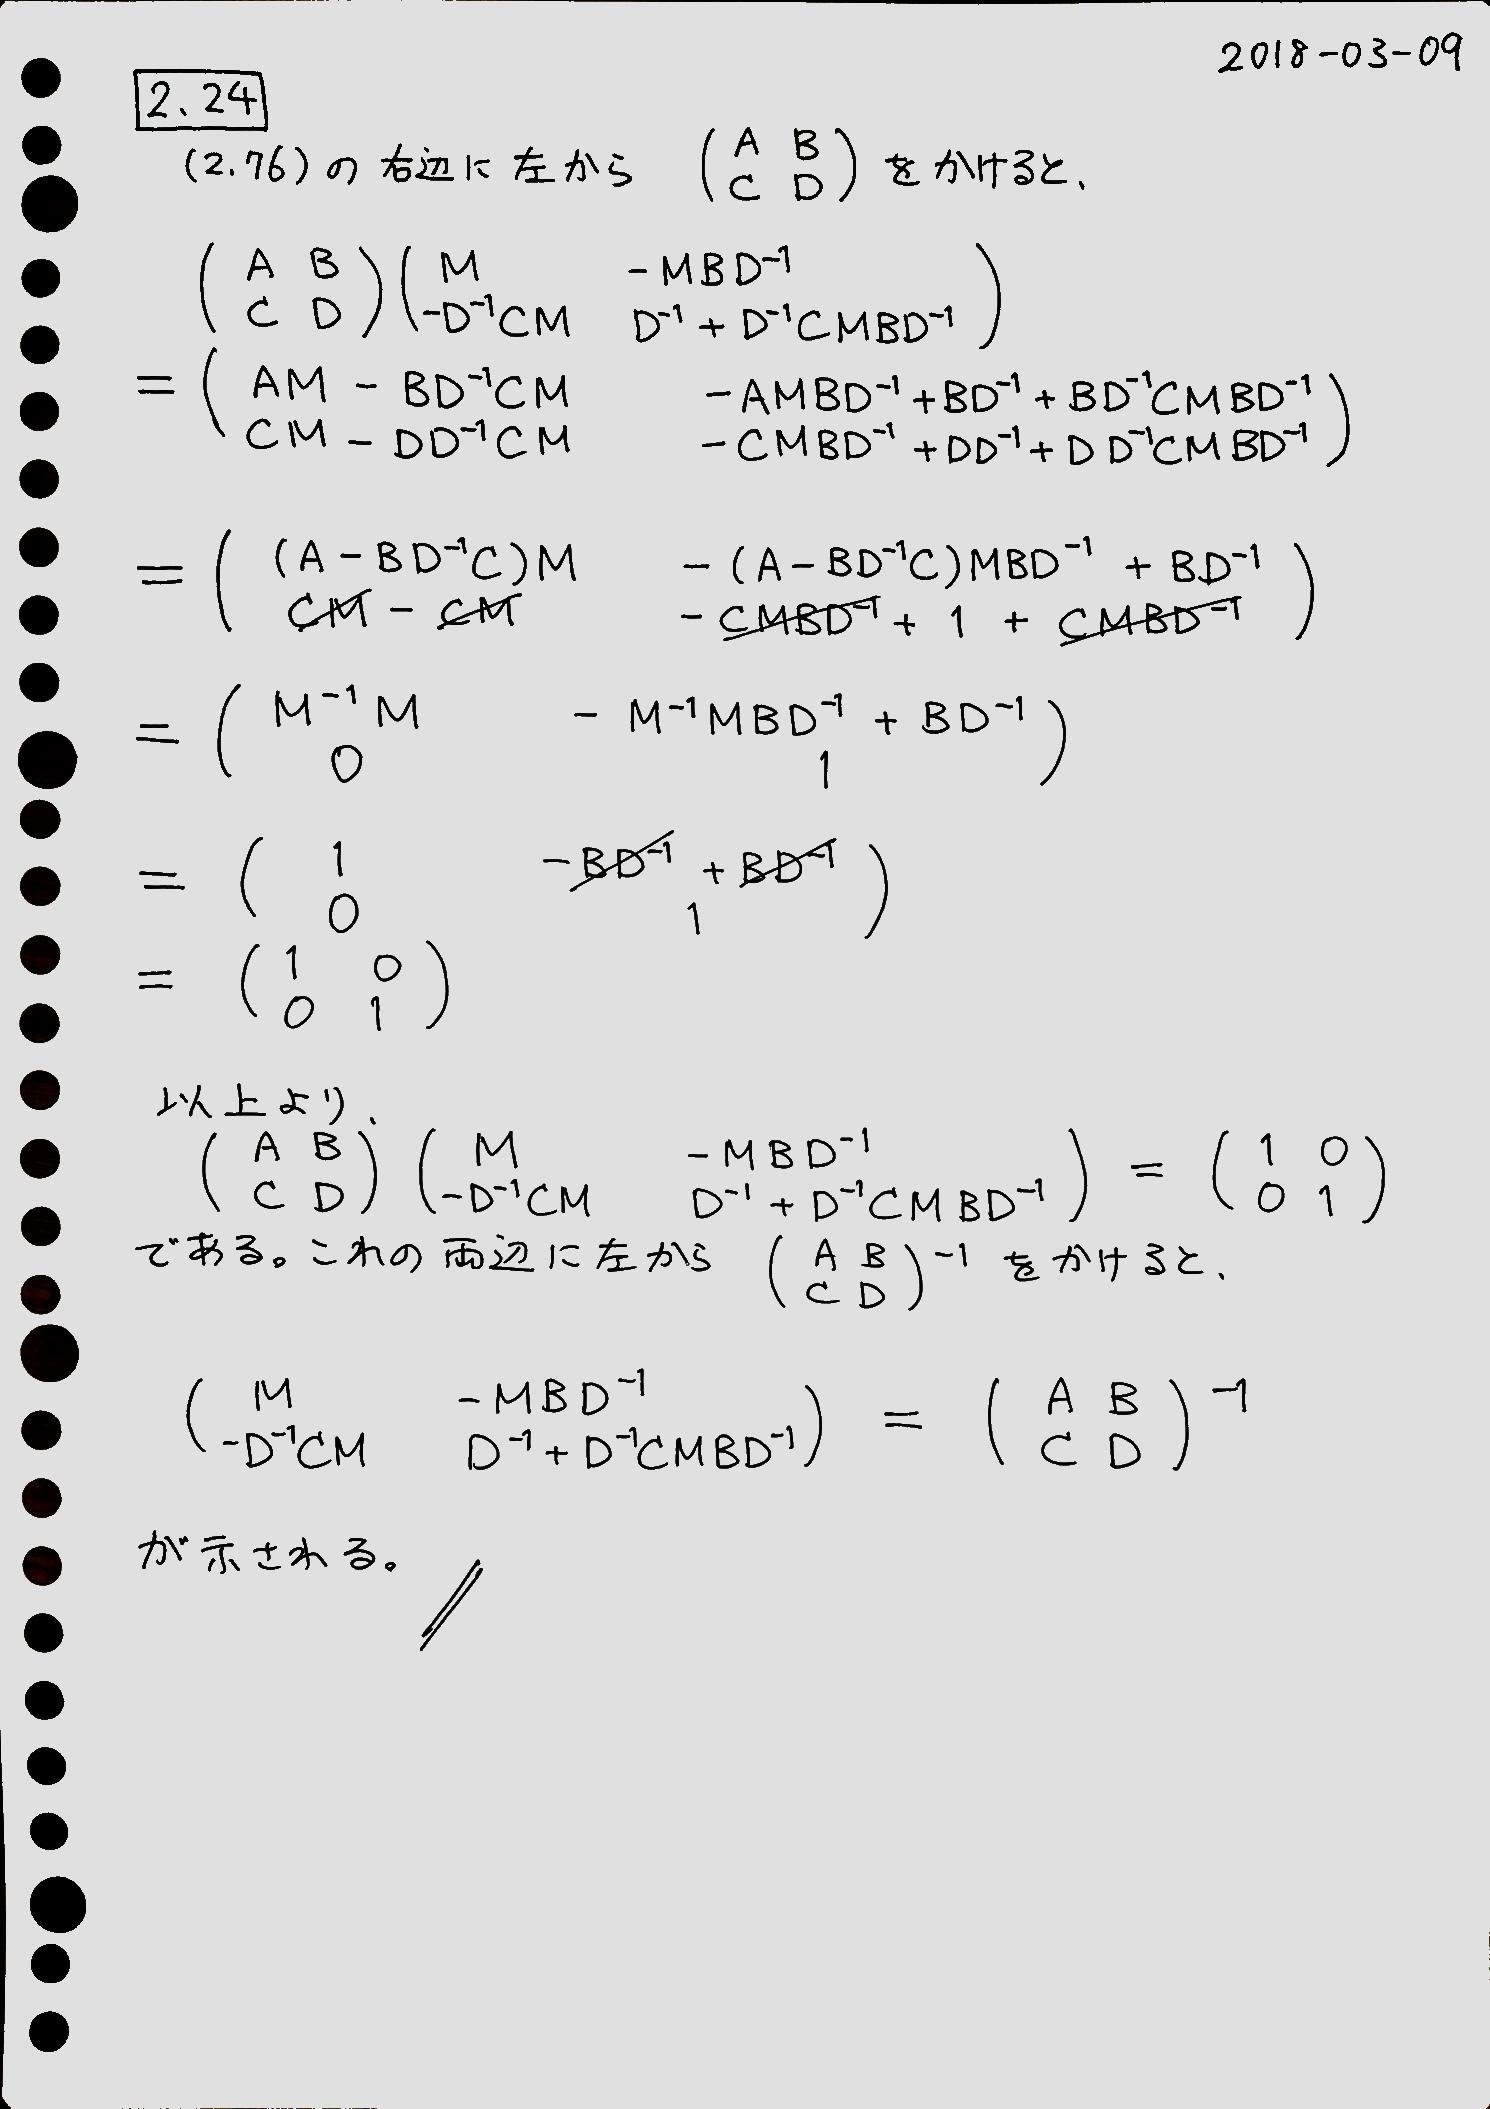 2018-03-09
2.24
(2.76)の右辺に左から ( A B ; C D ) をかけると、
( A B ; C D ) ( M -MBD⁻¹ ; -D⁻¹CM D⁻¹ + D⁻¹CMBD⁻¹ )
= ( AM - BD⁻¹CM -AMBD⁻¹ + BD⁻¹ + BD⁻¹CMBD⁻¹ ; CM - DD⁻¹CM -CMBD⁻¹ + DD⁻¹ + DD⁻¹CMBD⁻¹ )
= ( (A - BD⁻¹C)M -(A - BD⁻¹C)MBD⁻¹ + BD⁻¹ ; CM - CM -CMBD⁻¹ + 1 + CMBD⁻¹ )
= ( M⁻¹M -M⁻¹MBD⁻¹ + BD⁻¹ ; 0 1 )
= ( 1 -BD⁻¹ + BD⁻¹ ; 0 1 )
= ( 1 0 ; 0 1 )
以上より、
( A B ; C D ) ( M -MBD⁻¹ ; -D⁻¹CM D⁻¹ + D⁻¹CMBD⁻¹ ) = ( 1 0 ; 0 1 )
である。これの両辺に左から ( A B ; C D )⁻¹ をかけると、
( M -MBD⁻¹ ; -D⁻¹CM D⁻¹ + D⁻¹CMBD⁻¹ ) = ( A B ; C D )⁻¹
が示される。